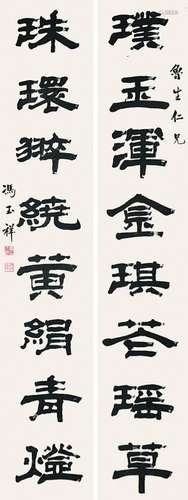 璞玉渾金琪花瑤草
魯生仁兄
珠環翠繞黃絹青燈
馮玉祥